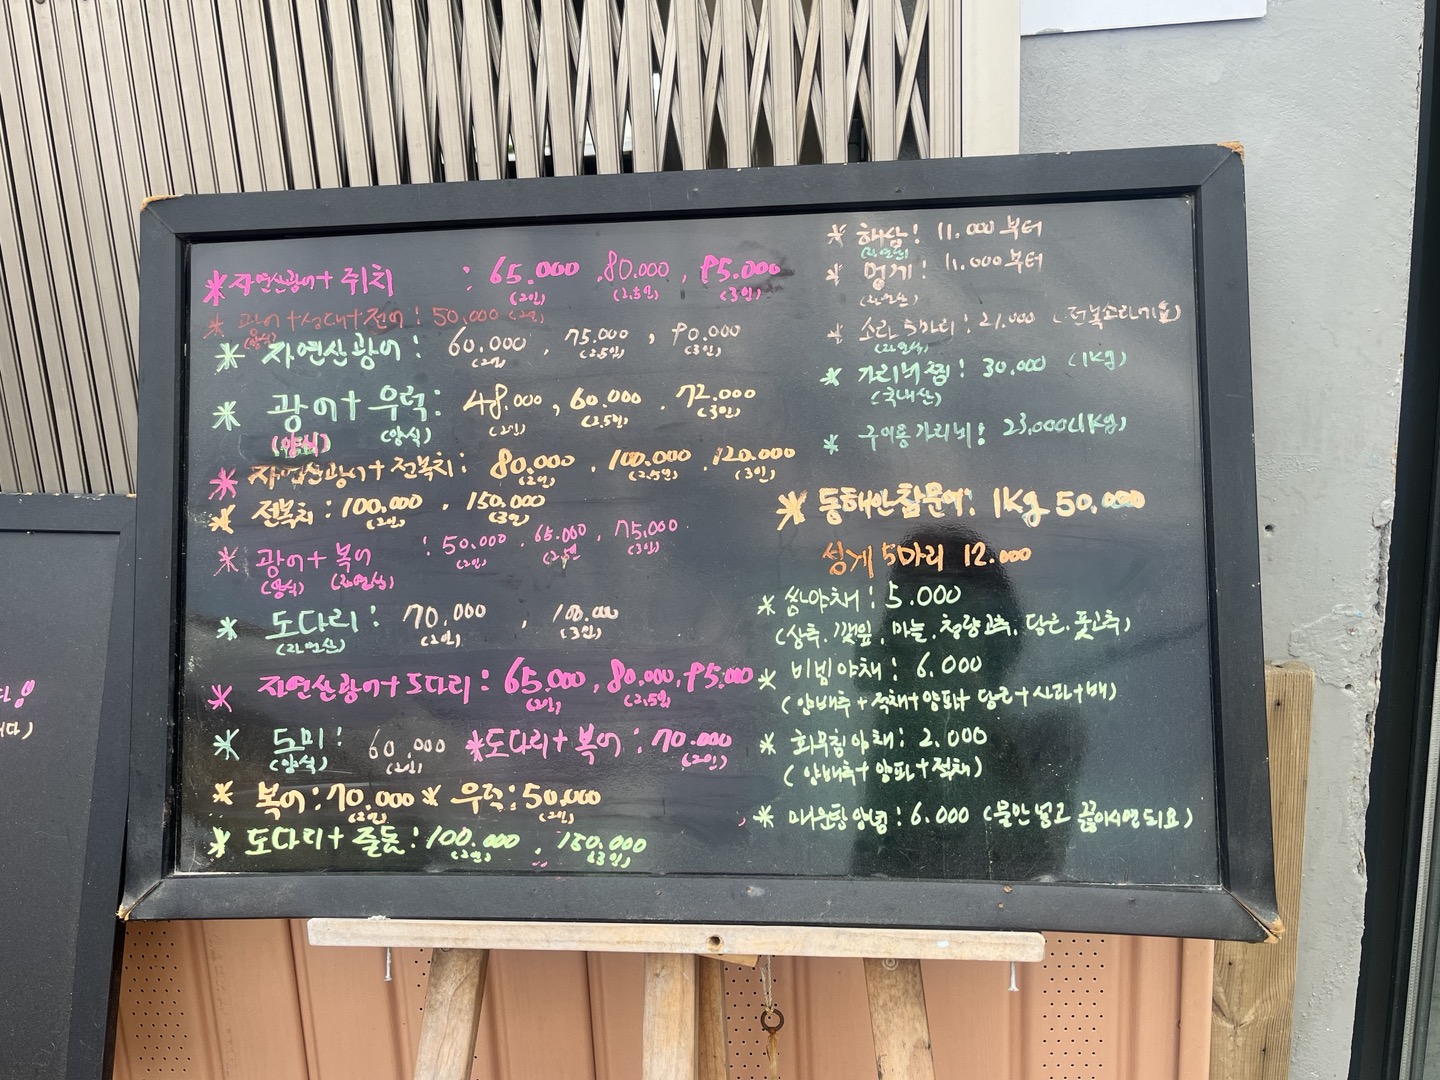 *자연산광어+쥐치 : 65.000 , 80.000 , 95.000
(2인) (2.5인) (3인)
* 광어+성대+전어 : 50,000 (2인)
(양식)
* 자연산광어 : 60,000 , 75.000 , 90.000
(2인) (2.5인) (3인)
* 광어+우럭 : 48.000 , 60.000 , 72.000
(양식) (양식) (2인) (2.5인) (3인)
* 자연산광어+전복치 : 80.000 , 100.000 , 120.000
(2인) (2.5인) (3인)
* 전복치 : 100.000 , 150.000
(2인) (3인)
* 광어+복어 : 50.000 , 65.000 , 75,000
(양식) (자연산) (2인) (2.5인) (3인)
* 도다리 : 70.000 , 100.000
(자연산) (2인) (3인)
* 자연산광어+도다리 : 65.000 , 80.000 , 95.000
(2인) (2.5인)
* 도미 : 60,000 *도다리+복어 : 70.000
(양식) (2인) (2인)
* 복어 : 70,000 * 우럭 : 50,000
(2인) (2인)
* 도다리+줄돔 : 100.000 , 150.000
(2인) (3인)
* 해삼 : 11.000 부터
(자연산)
* 멍게 : 11.000 부터
(자연산)
* 소라 5마리 : 21.000
(자연산)
* 가리비찜 : 30.000 (1kg)
(국내산)
* 구이용가리비 : 23,000 (1kg)
* 동해안참문어 : 1kg 50.000
성게 5마리 12.000
* 쌈야채 : 5.000
(상추, 깻잎, 마늘, 청량고추, 당근, 풋고추)
* 비빔야채 : 6.000
(양배추+적채+양파+당근+사과+배)
* 회무침야채 : 2.000
(양배추+양파+적채)
* 매운탕양념 : 6.000 (물만 넣고 끓이시면 되요)